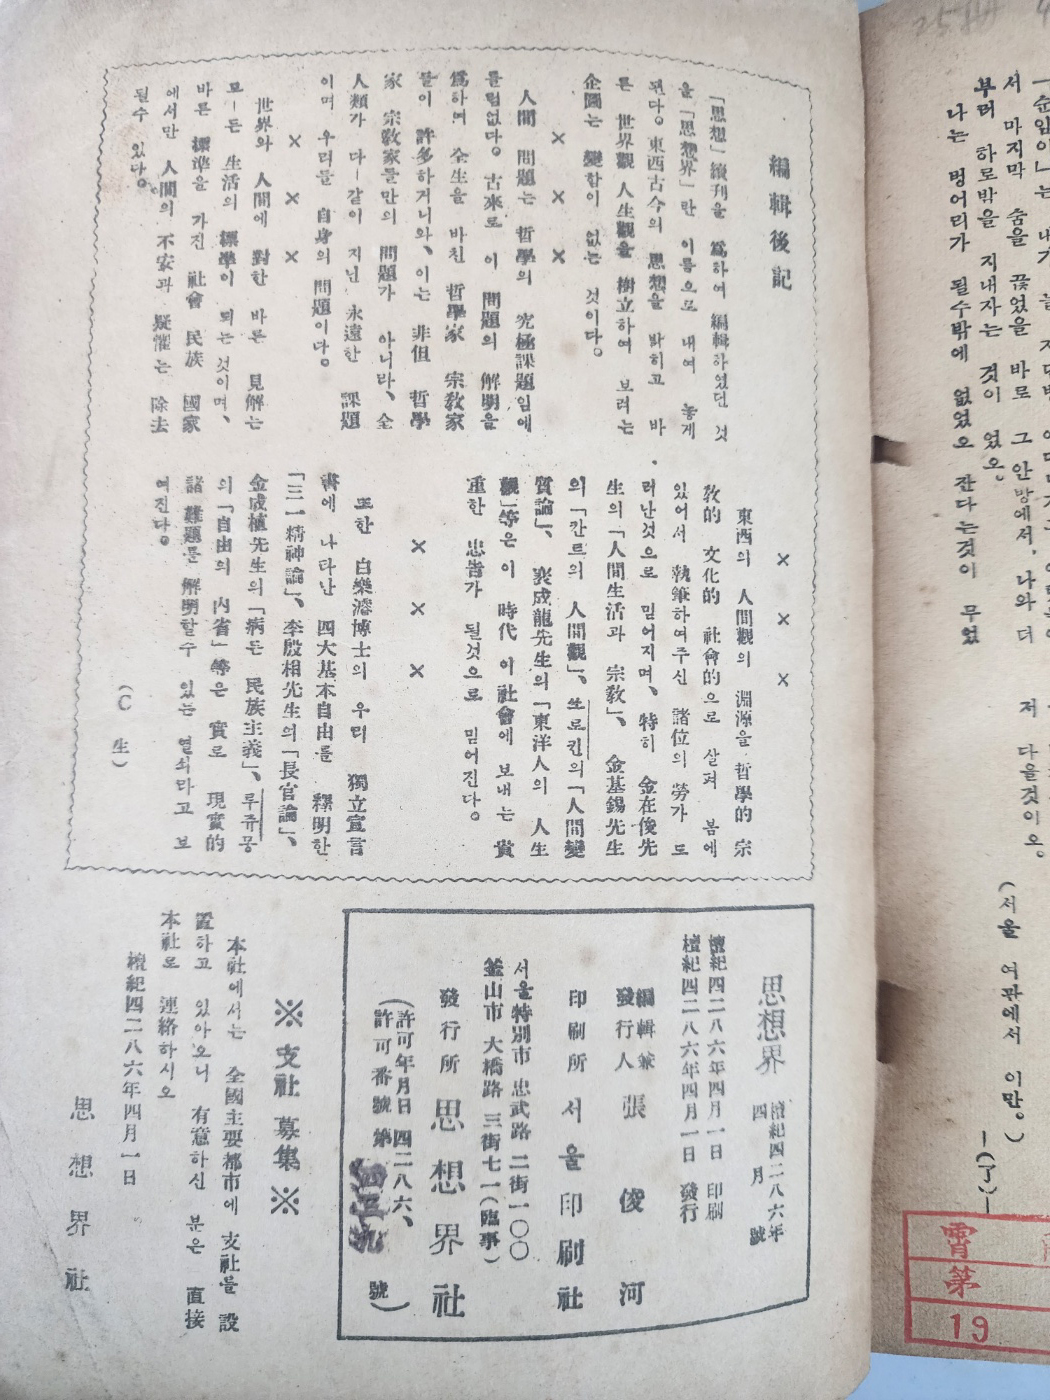 編輯後記
「思想」續刊을 爲하여 編輯하였던 것
을 「思想界」란 이름으로 내여 놓게
된다。東西古今의 思想을 밝히고 바
른 世界觀 人生觀을 樹立하여 보려는
企圖는 變함이 없는 것이다。
× × ×
人間 問題는 哲學의 究極課題임에
틀림없다。古來로 이 問題의 解明을
爲하여 全生을 바친 哲學家 宗敎家
들이 許多하거니와、이는 非但 哲學
家 宗敎家들만의 問題가 아니라、全
人類가 다―같이 지닌 永遠한 課題
이며 우리들 自身의 問題이다。
× × ×
世界와 人間에 對한 바른 見解는
모―든 生活의 標準이 되는 것이며、
바른 標準을 가진 社會 民族 國家
에서만 人間의 不安과 疑懼는 除去
될수 있다。
× × ×
東西의 人間觀의 淵源을 哲學的 宗
敎的 文化的 社會的으로 살펴 봄에
있어서 執筆하여주신 諸位의 勞가 드
러난것으로 믿어지며、特히 金在俊先
生의 「人間生活과 宗敎」、金基錫先生
의 「칸트의 人間觀」、쏘로킨의 「人間變
質論」、裵成龍先生의 「東洋人의 人生
觀」等은 이 時代 이 社會에 보내는 貴
重한 忠告가 될것으로 믿어진다。
× × ×
또한 白樂濬博士의 우리 獨立宣言
書에 나타난 四大基本自由를 釋明한
「三一精神論」、李殷相先生의 「長官論」、
金成植先生의 「病든 民族主義」、루쥬몽
의 「自由의 內省」等은 實로 現實的
諸 難題를 解明할수 있는 열쇠라고 보
여진다。
(C 生)
思想界 檀紀四二八六年 四月號
檀紀四二八六年四月一日 印刷
檀紀四二八六年四月一日 發行
編輯兼
發行人 張俊河
印刷所 서울印刷社
서울特別市 忠武路 二街一〇〇
釜山市 大橋路 三街七一(臨事)
發行所 思想界社
(許可年月日 四二八六、
許可番號 第 號)
※支社 募集※
本社에서는 全國主要都市에 支社를 設
置하고 있아오니 有意하신 분은 直接
本社로 連絡하시오
檀紀四二八六年四月一日
思想界社
서 마지막 숨을 끊었을 바로 그 안방에서, 나와 더
부러 하로밤을 지내자는 것이 었오。
나는 벙어리가 될수밖에 없었오 잔다는것이 무었
저 다을것이오。
(서울 여관에서 이만。)
―(了)―
第
19